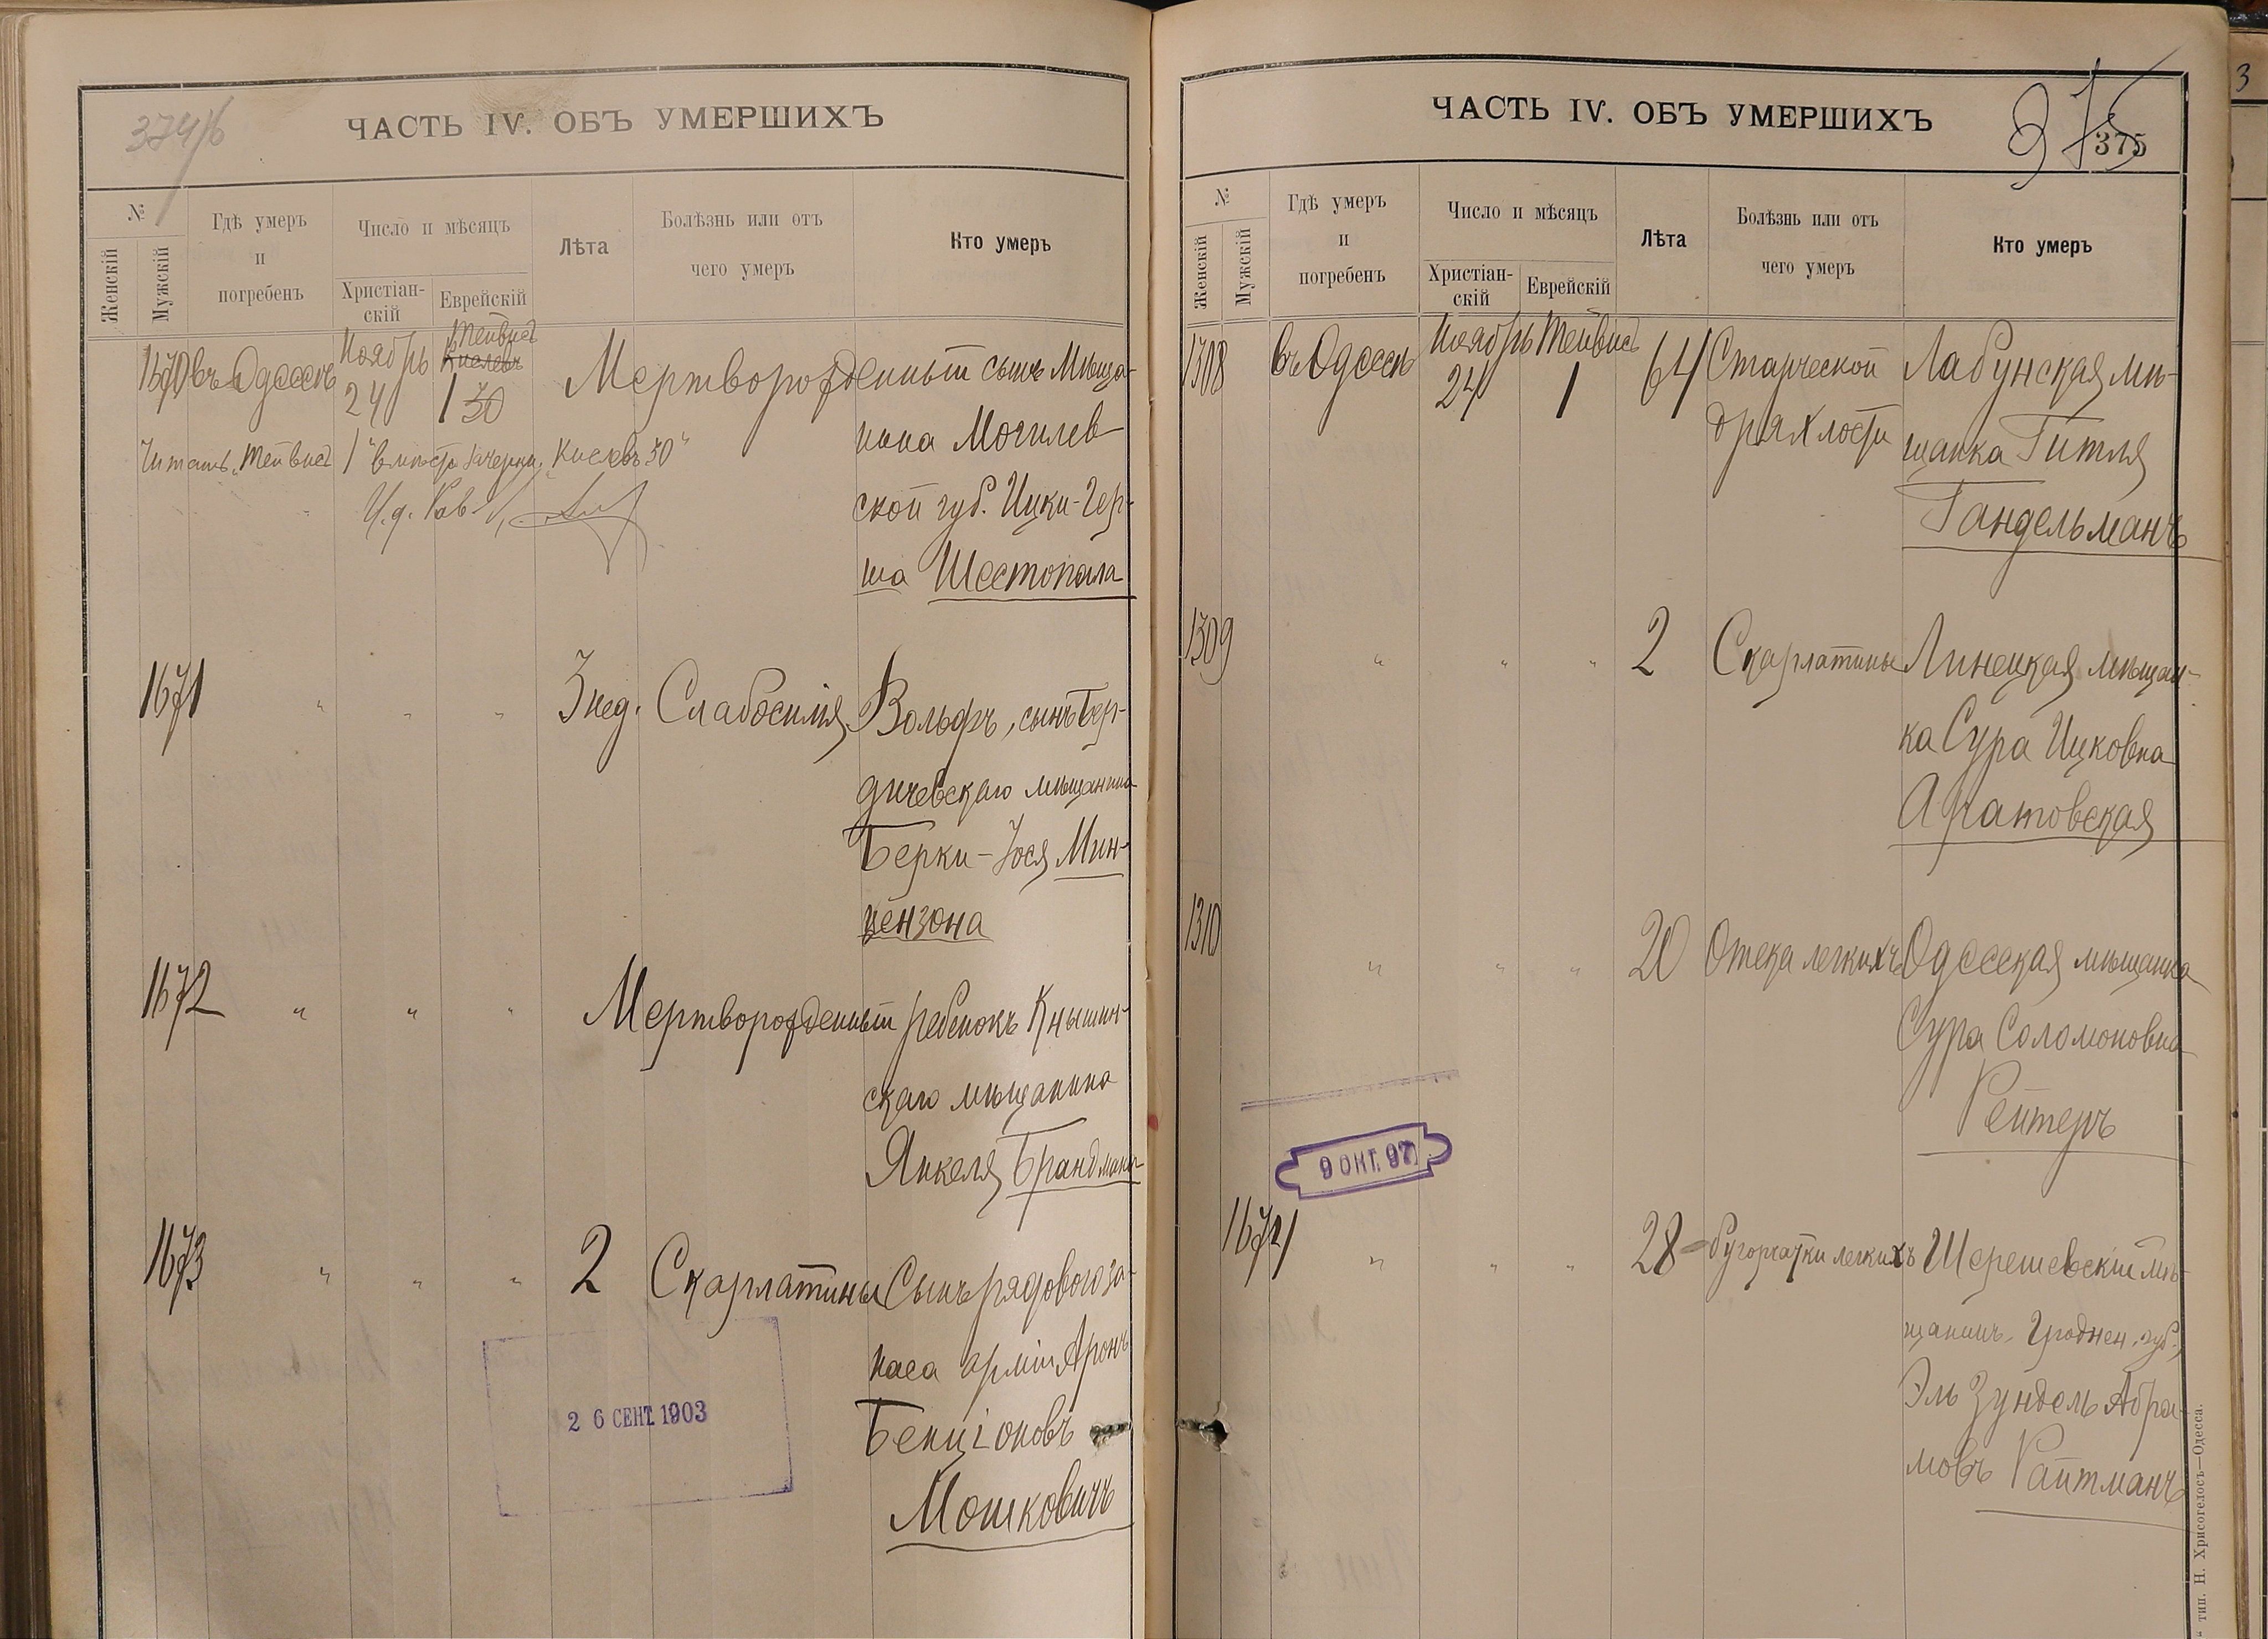 374/б
ЧАСТЬ IV. ОБЪ УМЕРШИХЪ
№
Женскій
Мужскій
Гдѣ умеръ
и
погребенъ
Число и мѣсяцъ
Христіан-
скій
Еврейскій
Лѣта
Болѣзнь или отъ
чего умеръ
Кто умеръ
1670 въ Одессѣ Ноябрь 24 Тейвисъ Кислевъ 1 30 Мертворожденный сынъ Мѣща-
нина Могилев
ской губ. Ицки-Гер-
ша Шестопала
Читать „Тейвисъ 1" вмѣсто зачеркн. „Кислевъ 30"
И.д. Рав.
1671 " " " 3 нед. Слабосилія Вольфъ, сынъ Бер-
дичевскаго мѣщанина
Берки-Іося Мин-
цензона
1672 " " " Мертворожденный ребенокъ Кнышин-
скаго мѣщанина
Янкеля Брандмана
1673 " " " 2 Скарлатины Сынъ рядового за-
паса арміи Аронъ
Бенціоновъ
Мошковичъ
2 6 СЕНТ. 1903
ЧАСТЬ IV. ОБЪ УМЕРШИХЪ
375
375
№
Женскій
Мужскій
Гдѣ умеръ
и
погребенъ
Число и мѣсяцъ
Христіан-
скій
Еврейскій
Лѣта
Болѣзнь или отъ
чего умеръ
Кто умеръ
1308 въ Одессѣ Ноябрь 24 Тейвисъ 1 64 Старческой Лабунская мѣ-
дряхлости щанка Гитля
Гандельманъ
1309 " " " 2 Скарлатины Линецкая мѣщан-
ка Сура Ицковна
Аратовская
1310 " " " 20 Отека легкихъ Одесская мѣщанка
Сура Соломоновна
Рейтеръ
9 ОКТ. 97
1674 " " " 28 Бугорчатки легкихъ Шерешевскій мѣ-
щанинъ, Гроднен. губ.,
Эль Зундель Абра-
мовъ Райтманъ
" тип. Н. Хрисогелосъ—Одесса.